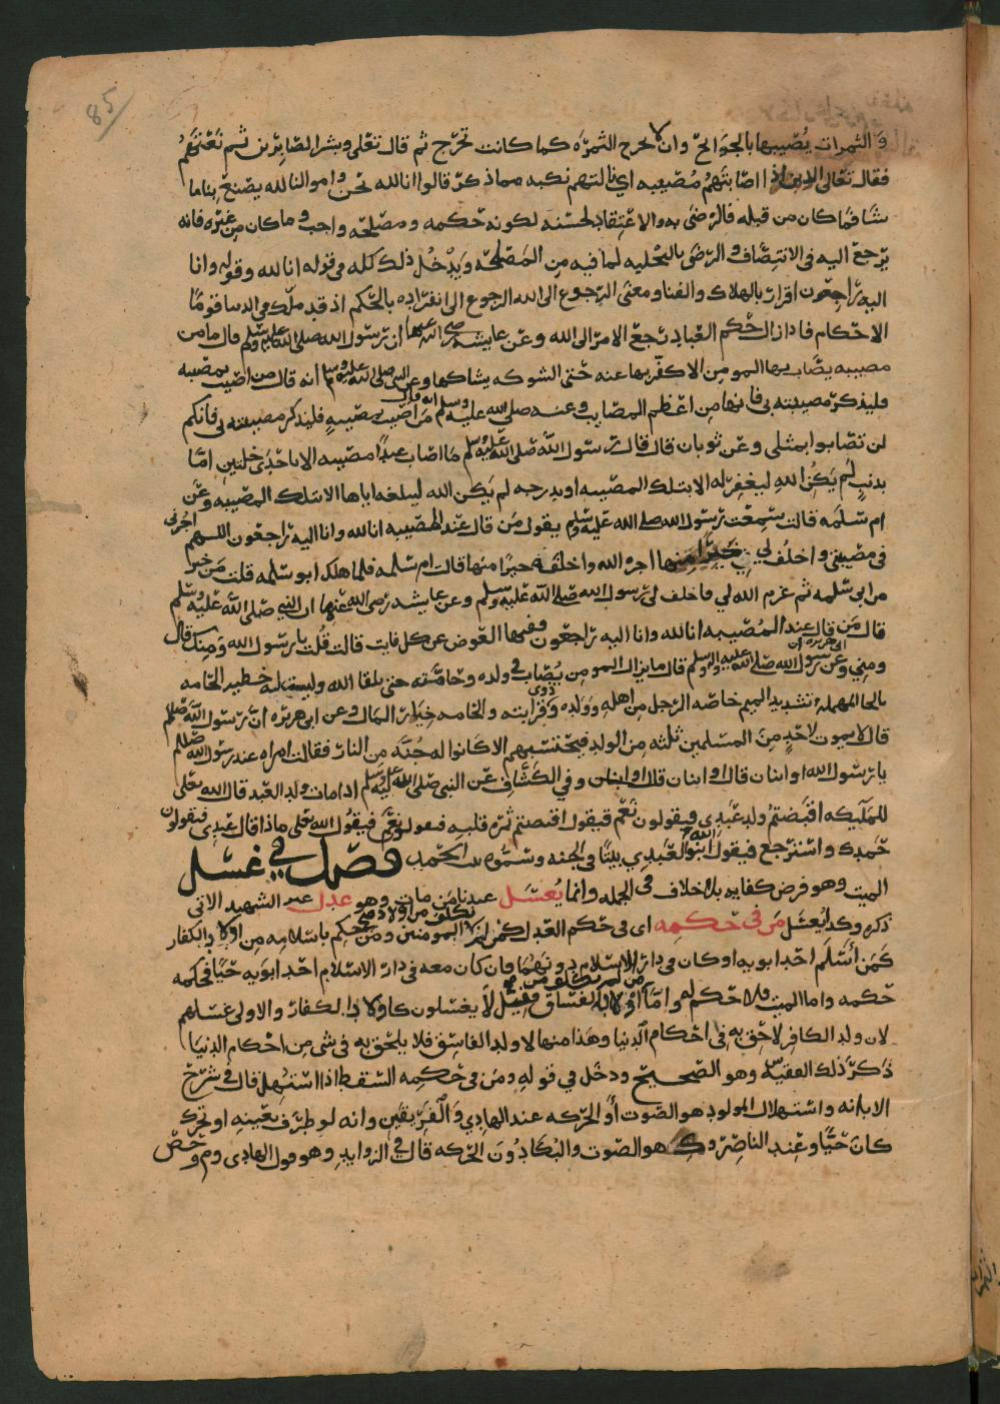 85
والثمرات يُصيبها بالجوائح وان لا تخرج الثمرة كما كانت تخرج ثم قال تعلى وبشر الصابرين ثم نعتهم
فقال تعالى الذين اذا اصابتهم مُصيبه اي نالتهم نكبه مما ذكر قالوا انا لله نحن واموالنا لله يصنع بنا ما
شا فما كان من قبله فالرضى به والاعتقاد لحسنه لكونه حكمه ومصلحه واجب وما كان من غيره فانه
يرجع اليه في الانتصاف والرضى بالتخليه لما فيه من المصلحه ويدخل ذلك كله في قوله انا لله وقوله وانا
اليه راجعون اقرار بالهلاك والفنا ومعنى الرجوع الى الله الرجوع الى انفراده بالحكم اذ قد ملك في الدنيا قومًا
الاحكام فاذا زال حكم العباد رجع الامر الى الله وعن عايشه رضي الله عنها ان رسول الله صلى الله عليه وسلم قال ما من
مصيبه يصاب بها المومن الا كفر بها عنه حتى الشوكه يشاكها وعن النبي صلى الله عليه وسلم انه قال من اصيب بمصيبه
فليذكر مصيبته بي فانها من اعظم المصايب وعنه صلى الله عليه وسلم انه قال من اصيب بمصيبهٍ فليذكر مصيبته بي فانكم
لن تصابوا بمثلي وعن ثوبان قال قال رسول الله صلى الله عليه وسلم ما اصاب عبدًا مصيبه الا باحدى خلتين اما
بذنبٍ لم يكن الله ليغفر له الا بتلك المصيبه او بدرجه لم يكن الله ليبلغه اياها الا بتلك المصيبه وعن
ام سلمه قالت سمعت رسول الله صلى الله عليه وسلم يقول من قال عند المصيبه انا لله وانا اليه راجعون اللهم اجرني
في مصيبتي واخلف لي خيرًا منها اجره الله واخلف له خيرًا منها قالت ام سلمه فلما هلك ابو سلمه قلت من خير
من ابي سلمه ثم عزم الله لي فاخلف لي رسول الله صلى الله عليه وسلم وعن عايشه رضي الله عنها ان النبي صلى الله عليه وسلم
قال من قال عند المُصيبه انا لله وانا اليه راجعون ففيها العوض عن كل فايت قالت قلت يا رسول الله ومنك قال
ومني وعن ابي هريره ان رسول الله صلى الله عليه واله وسلم قال ما يزال المومن يُصاب في ولده وحامته حتى يلقا الله وليست له خطيه الحامه
بالحا المهمله وتشديد الميم خاصه الرجل من اهله وولده وذوي قرابته والحامه خيار المال وعن ابي هريره ان رسول الله صلعم
قال لا يموت لاحدٍ من المسلمين ثلثه من الولد فيحتسبهم الا كانوا له جُنّه من النار فقالت امراه عند رسول الله صلعم
يا رسول الله او اثنان قال او اثنان قلنا او اثنان وفي الكشاف عن النبي صلى الله عليه وسلم اذا مات ولد العبد قال الله تعلى
للملائكه اقبضتم ولد عبدي فيقولون نعم فيقول اقبضتم ثمره قلبه فيقولون نعم فيقول الله تعلى ماذا قال عبدي فيقولون
حمدك واسترجع فيقول الله ابنوا لعبدي بيتًا في الجنه وسموه بيت الحمد فصل في غسل
الميت وهو فرض كفايه بلا خلاف في الجمله وانما يُغسل عندنا من مات وهو عدل غير الشهيد الاتي
ذكره وكذا يُغسل من في حكمه اي في حكم العدل كمن لم يكلف من اولاد المومنين ومن حكم باسلامه من اولاد الكفار
كمن أسلم احد ابويه او كان في دار الاسلام دونهما فان كان معه في دار الاسلام احد ابويه حيًا فحكمه
حكمه واما الميت فلا حكم له واما من لم يكلف من اولاد الفساق فقيل لا يغسلون كاولاد الكفار والاولى غسلهم
لان ولد الكافر لاحق به في احكام الدنيا وهذا منها لا ولد الفاسق فلا يلحق به في شي من احكام الدنيا
ذكر ذلك الفقيه س وهو الصحيح ودخل في قوله ومن في حكمه السقط اذا استهل قال في شرح
الابانه واستهلال المولود هو الصوت أو الحركه عند الهادي والفريقين وانه لو طرف بعينه او تحرك
كان حيًا وعند الناصر وك هو الصوت والبكا دون الحركه قال في الزوايد وهو قول الهادي وم وحص